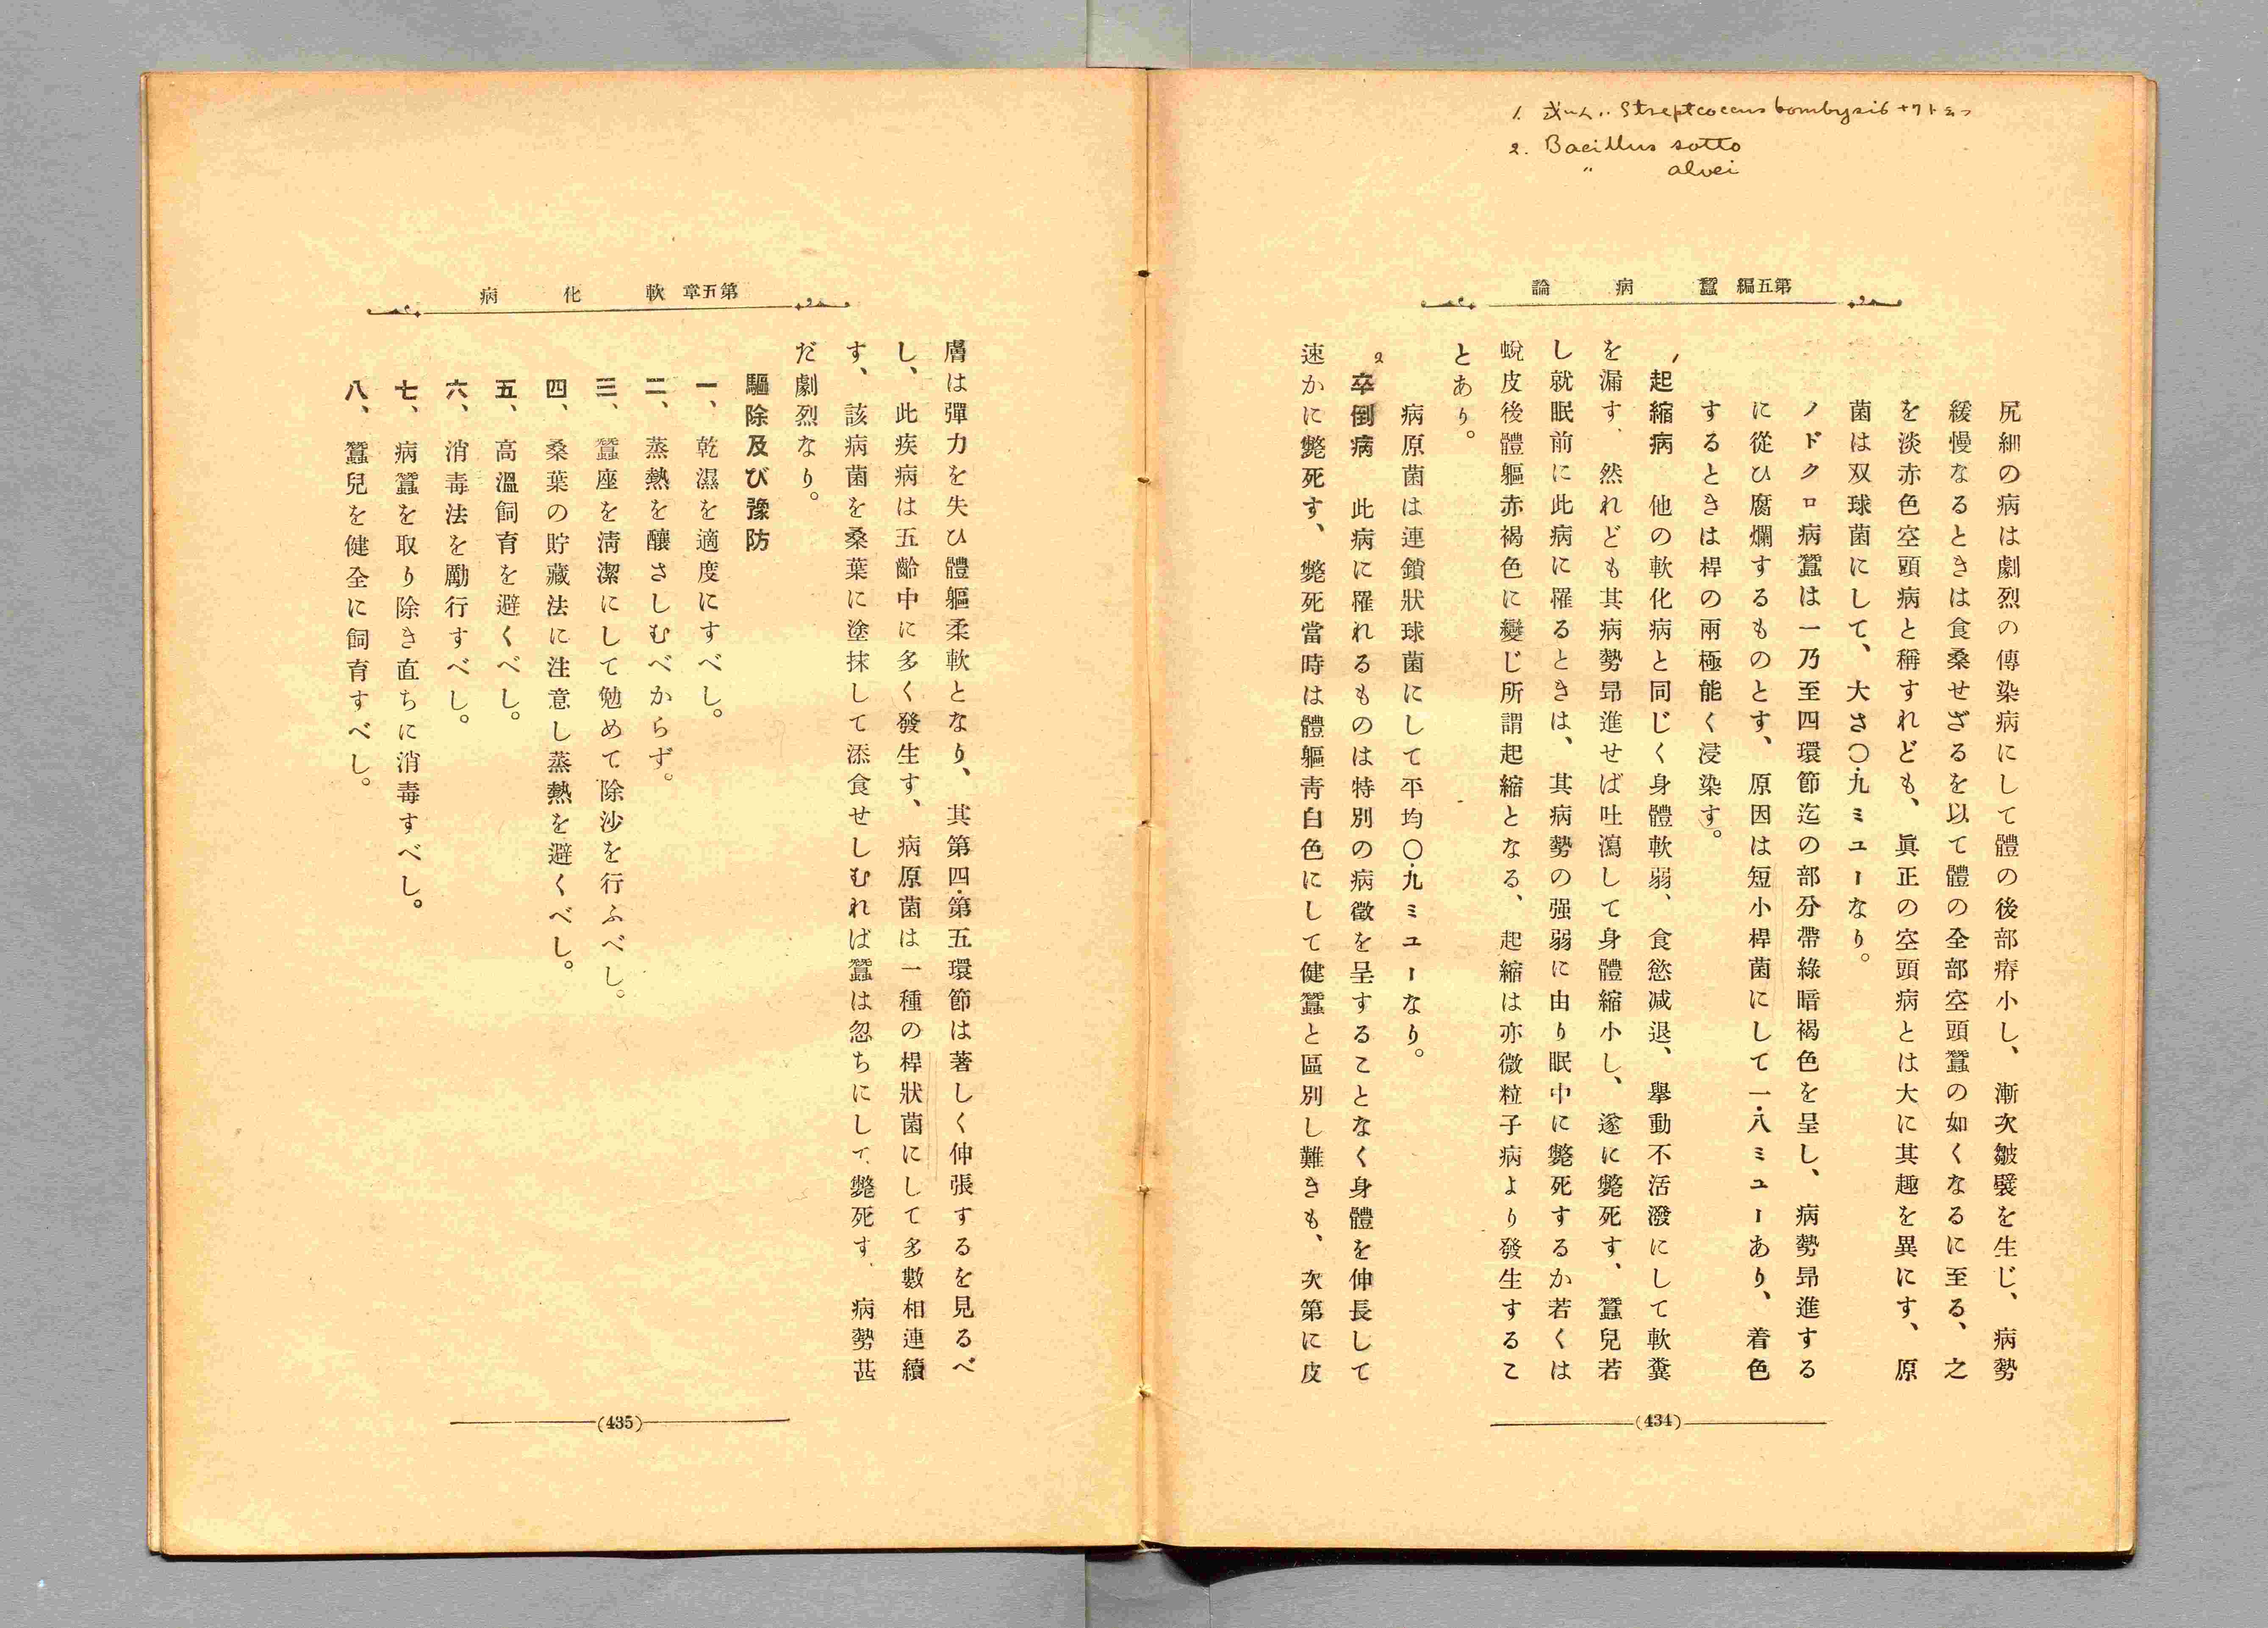 1. Streptcoccus bombysis ナリト云フ
2. Bacillus sotto
〃 alvei
第五編 蠶病論
尻細の病は劇烈の傳染病にして體の後部瘠小し、漸次皺襞を生じ、病勢
緩慢なるときは食桑せざるを以て體の全部空頭蠶の如くなるに至る、之
を淡赤色空頭病と稱すれども、眞正の空頭病とは大に其趣を異にす、原
菌は双球菌にして、大さ〇・九ミユーなり。
ノドクロ病蠶は一乃至四環節迄の部分帶綠暗褐色を呈し、病勢昻進する
に從ひ腐爛するものとす、原因は短小桿菌にして一・八ミユーあり、着色
するときは桿の兩極能く浸染す。
1 起縮病 他の軟化病と同じく身體軟弱、食慾減退、擧動不活潑にして軟糞
を漏す、然れども其病勢昻進せば吐瀉して身體縮小し、遂に斃死す、蠶兒若
し就眠前に此病に罹るときは、其病勢の强弱に由り眠中に斃死するか若くは
蛻皮後體軀赤褐色に變じ所謂起縮となる、起縮は亦微粒子病より發生するこ
とあり。
病原菌は連鎖狀球菌にして平均〇・九ミユーなり。
2 卒倒病 此病に罹れるものは特別の病徵を呈することなく身體を伸長して
速かに斃死す、斃死當時は體軀靑白色にして健蠶と區別し難きも、次第に皮
(434)
第五章 軟化病
膚は彈力を失ひ體軀柔軟となり、其第四・第五環節は著しく伸張するを見るべ
し、此疾病は五齡中に多く發生す、病原菌は一種の桿狀菌にして多數相連續
す、該病菌を桑葉に塗抹して添食せしむれば蠶は忽ちにして斃死す、病勢甚
だ劇烈なり。
驅除及び豫防
一、乾濕を適度にすべし。
二、蒸熱を釀さしむべからず。
三、蠶座を淸潔にして勉めて除沙を行ふべし。
四、桑葉の貯藏法に注意し蒸熱を避くべし。
五、高溫飼育を避くべし。
六、消毒法を勵行すべし。
七、病蠶を取り除き直ちに消毒すべし。
八、蠶兒を健全に飼育すべし。
(435)